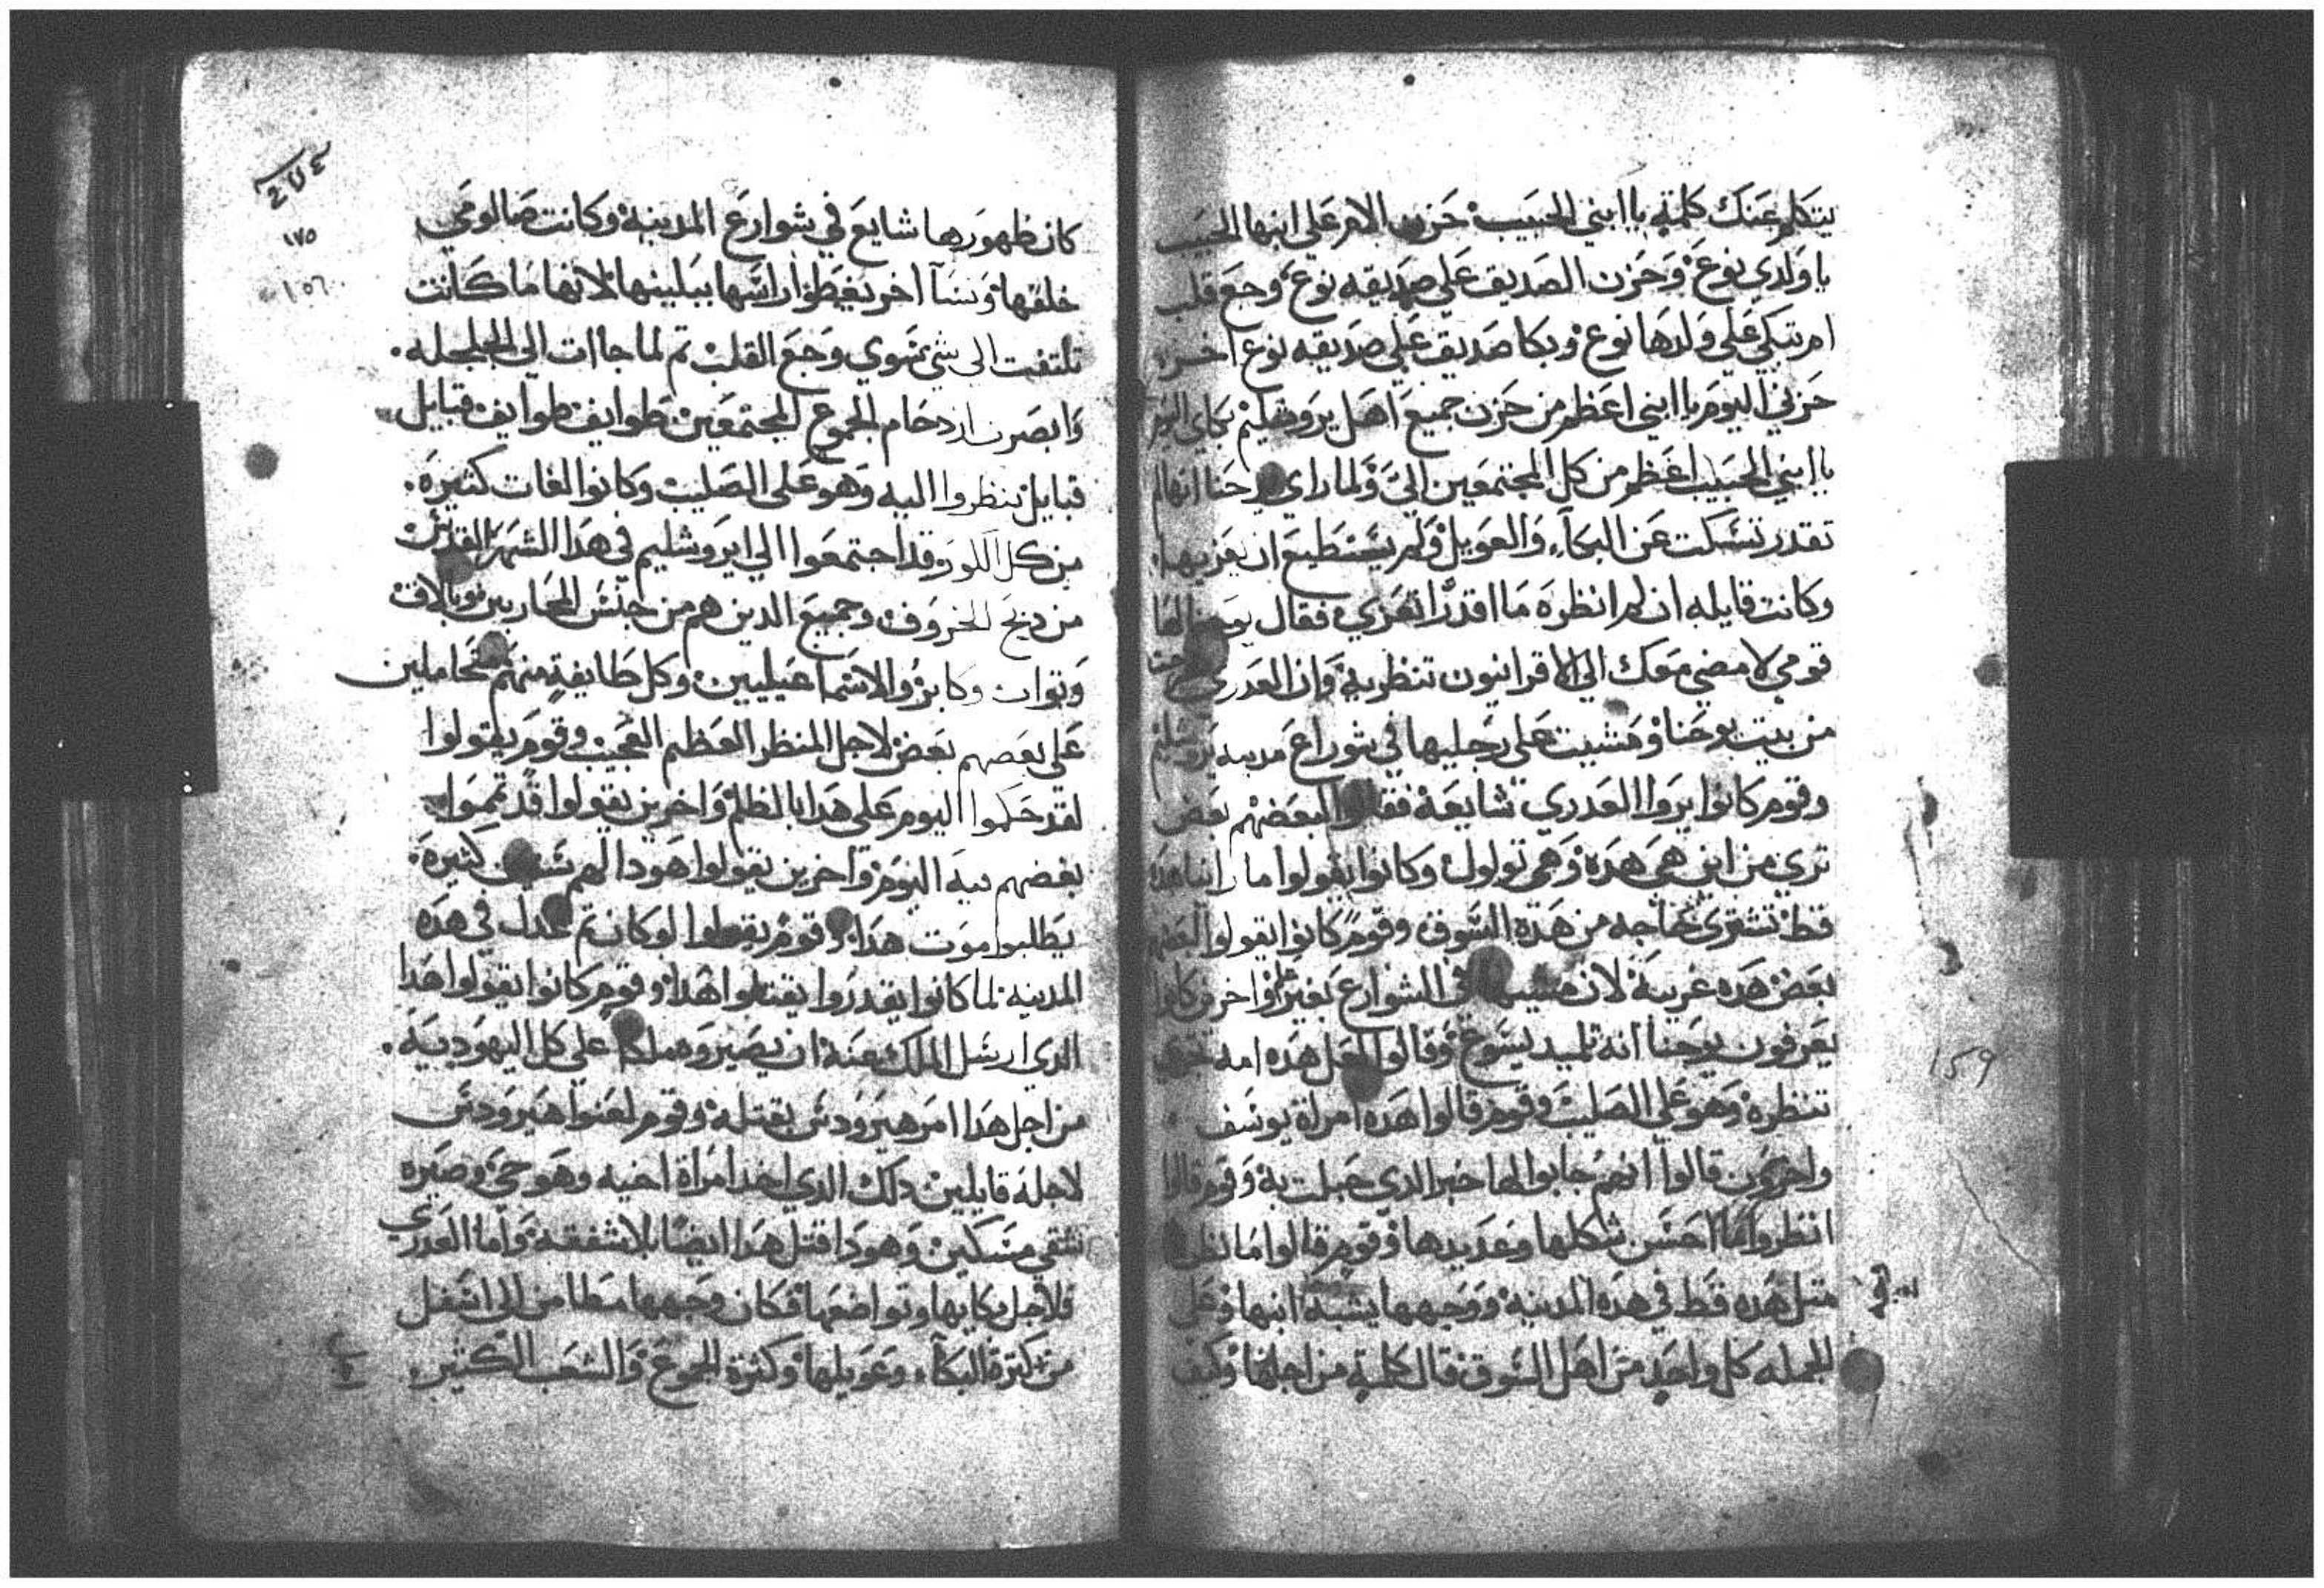 يتكلم عنك كلمة يا ابني الحبيب حزن الام علي ابنها الحبيب
يا ولدي نوع وحزن الصديق علي صديقه نوع وجع قلب
ام تبكي علي ولدها نوع وبكا صديق علي صديقه نوع اخر
حزني اليوم يا ابني اعظم من حزن جميع اهل يروشليم بكاي اليوم
يا ابني الحبيب اعظم من كل المجتمعين الي ولما راي يوحنا انها لم
تقدر تسكت عن البكاء والعويل ولم يستطيع ان يعزيها
وكانت قايله ان لم انظره ما اقدر اتعزي فقال يوحنا لها
قومي لامضي معك الي الاقرانيون تنظريه وان العدري خرجت
من بيت يوحنا ومشيت علي رجليها في شوراع مدينه يروشليم
وقوم كانوا يروا العدري شايعة فقالوا لبعضهم بعض
تري من اين هي هده وهي تولول وكانوا يقولوا ما راينا هده
قط تشتري حاجه من هده السوق وقوم كانوا يقولوا لبعضهم
بعض هده غريبة لان مشيها في الشوارع بغير واخرين كانوا
يعرفون يوحنا انه تلميد يسوع وقالوا لعل هده امه
تنظره وهو علي الصليب وقوم قالوا هده امراة يوسف
واخرون قالوا انهم جابوا لها خبر الدي حبلت به وقوم قالوا
انظروا ما احسن شكلها وعديدها وقوم قالوا ما نظرنا
متل هده قط في هده المدينة ووجهها يشبه ابنها وعلي
الجمله كل واحد من اهل السوق قال كلمة من اجلها وكيف
١٥٩
كان ظهورها شايع في شوارع المدينة وكانت صالومي
خلفها ونسآ اخر يغطوا راسها ببلينها لانها ما كانت
تلتفت الي شي سوي وجع القلب تم لما جاات الي الجلجله
وابصرت ازدحام الجموع المجتمعين طوايف طوايف قبايل
قبايل ينظروا اليه وهو علي الصليب وكانوا لغات كثيرة
من كل الكور وقد اجتمعوا الي ايروشليم في هدا الشهر
من دبح الخروف وجميع الدين هم من جنس
والاسماعيليين وكل طايفة منهم تحاملين
علي بعضهم بعض لاجل المنظر العظيم العجيب وقوم يقولوا
لقد حكموا اليوم علي هدا بالظلم واخرين يقولوا قد تمموا
بغضهم فيه اليوم واخرين يقولوا هودا لهم سنين كثيرة
يطلبوا موت هدا وقوم لو كان تم عدل في هده
المدينه لما كانوا يقدروا يقتلوا هدا وقوم كانوا يقولوا هدا
الدي ارسل الملك عنه ان يصيروه ملكا علي كل اليهودية
من اجل هدا امر هيرودس بقتله وقوم لعنوا هيرودس
لاجله قايلين دلك الدي اخد امراة اخيه وهو حي وصيره
شقي مسكين وهودا قتل هدا ايضا بلا شفقة واما العدري
فلاجل بكايها وتواضعها فكان وجهها مطامن الي اسفل
من كثرة البكاء وعويلها وكثرة الجموع والشعب الكثير
١٧٥
١٥٦